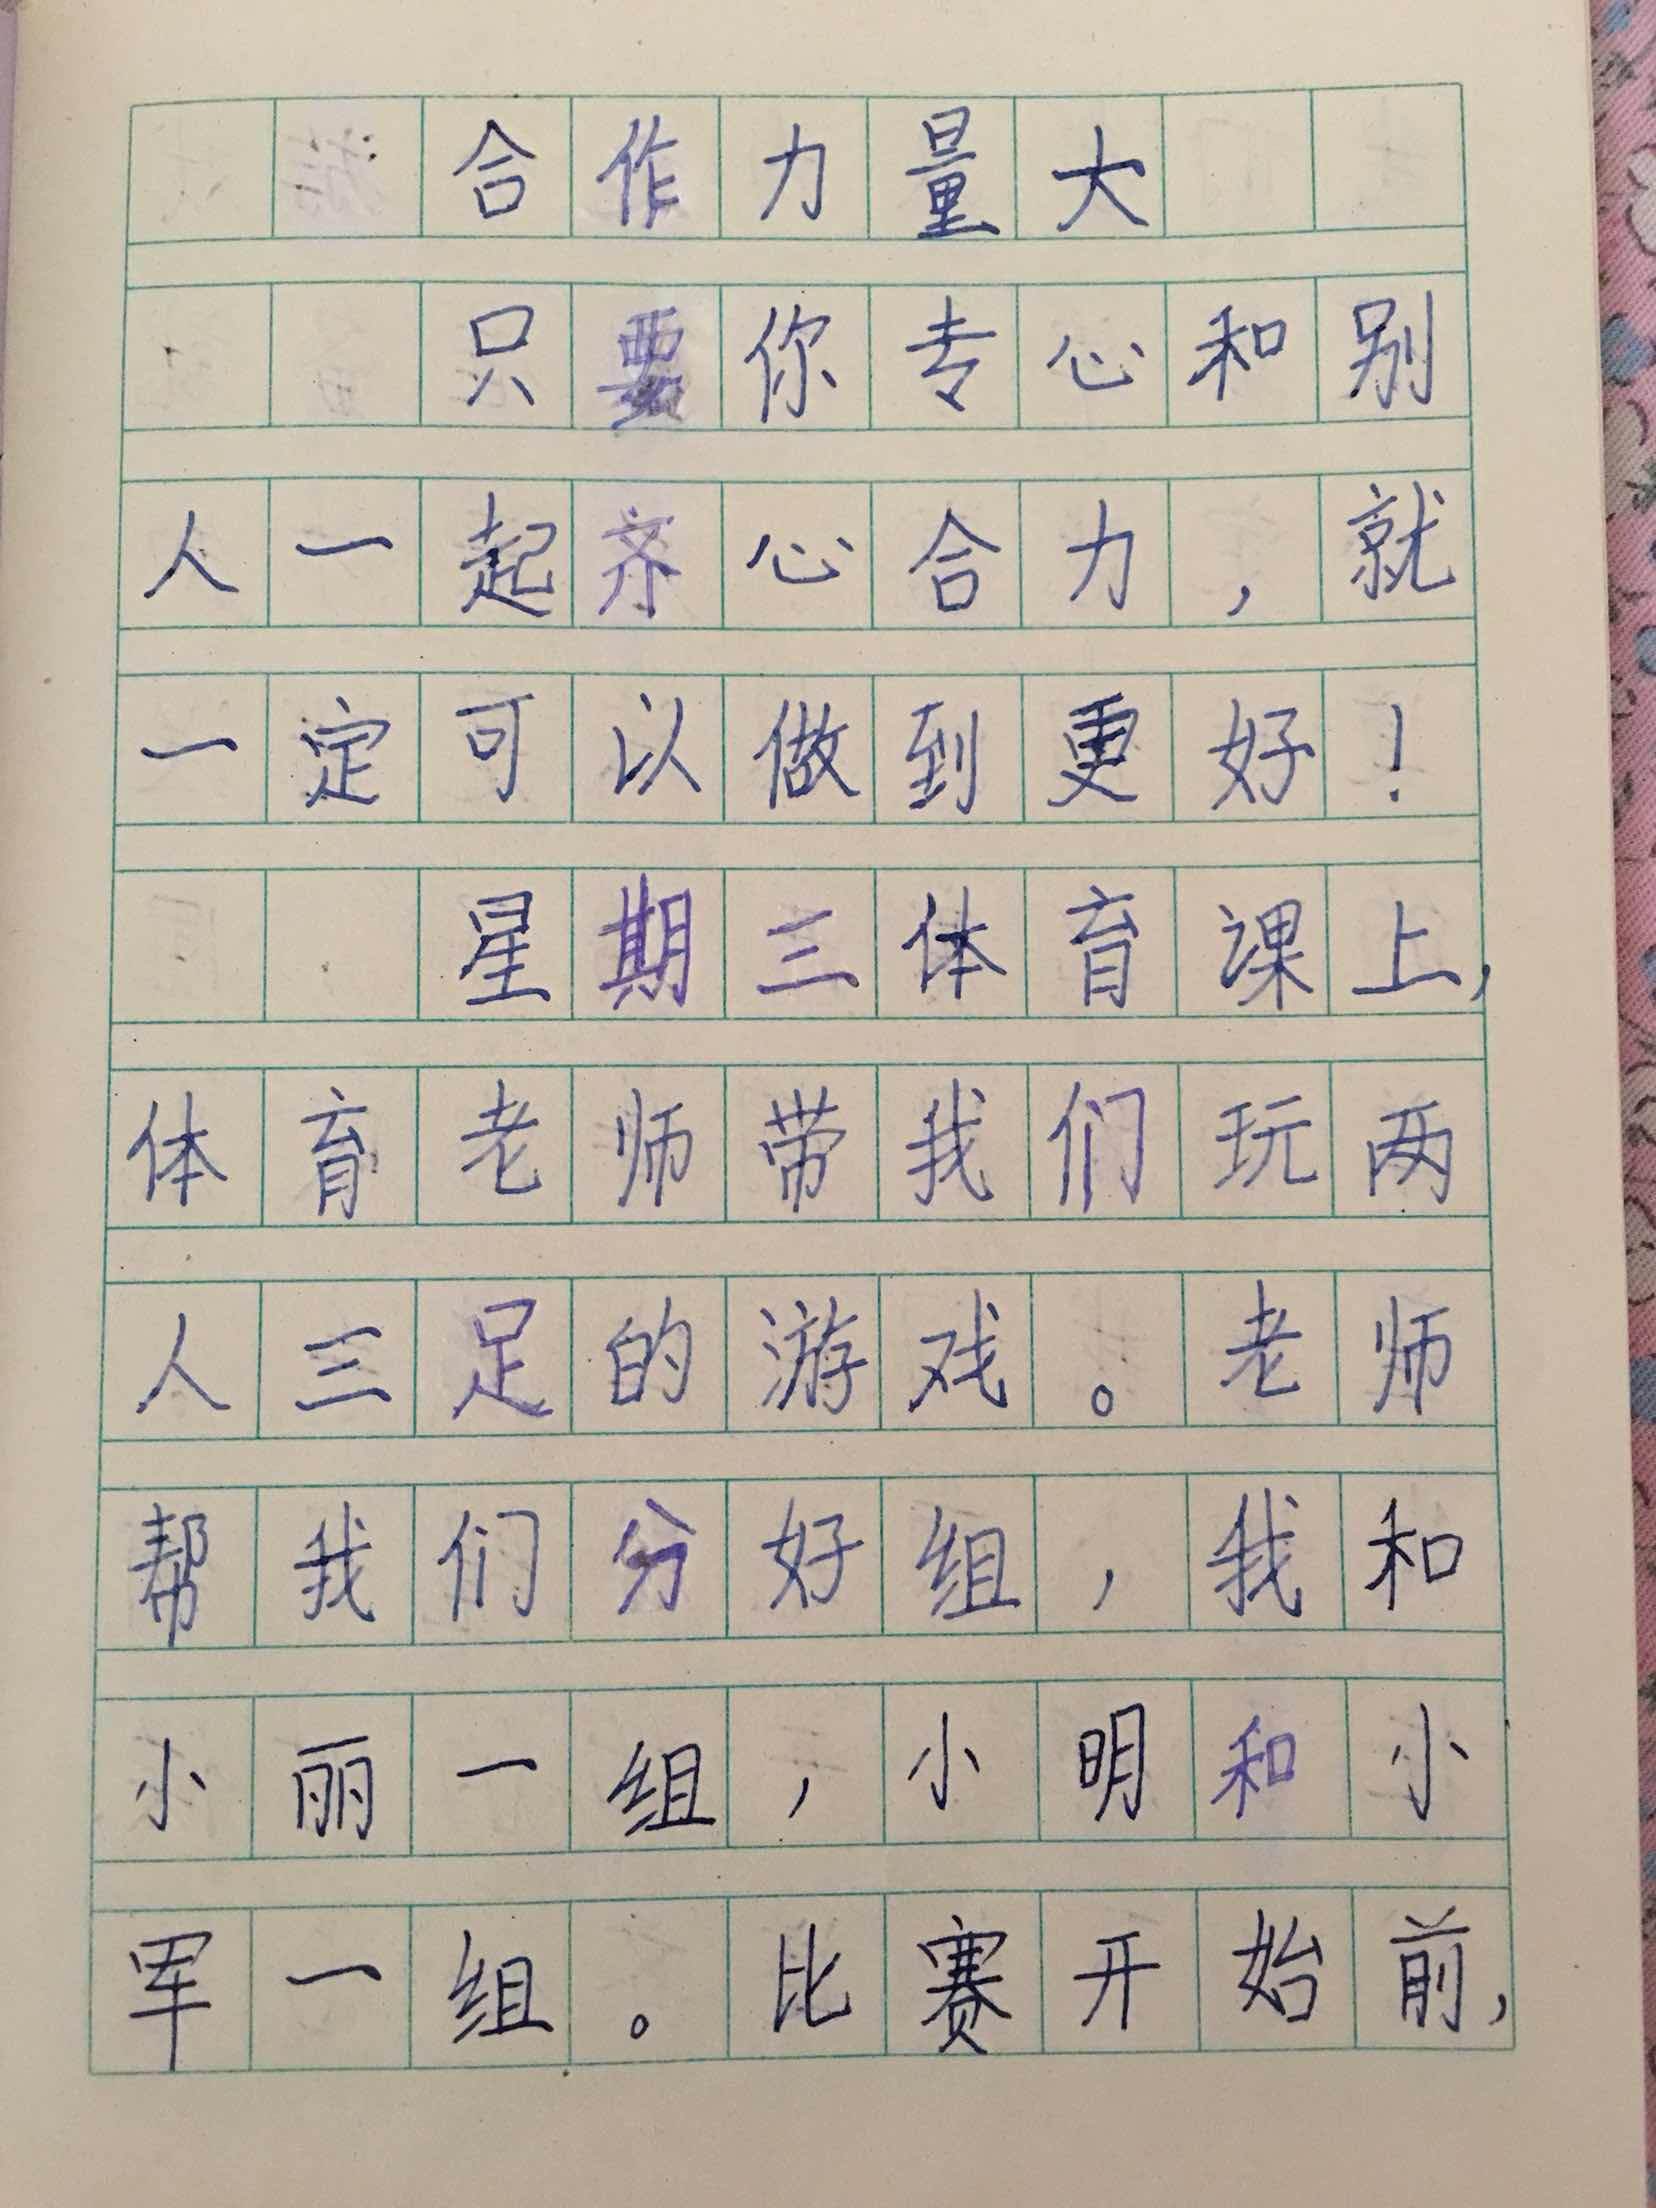 合作力量大
只要你专心和别
人一起齐心合力，就
一定可以做到更好！
星期三体育课上，
体育老师带我们玩两
人三足的游戏。老师
帮我们分好组，我和
小丽一组，小明和小
军一组。比赛开始前，